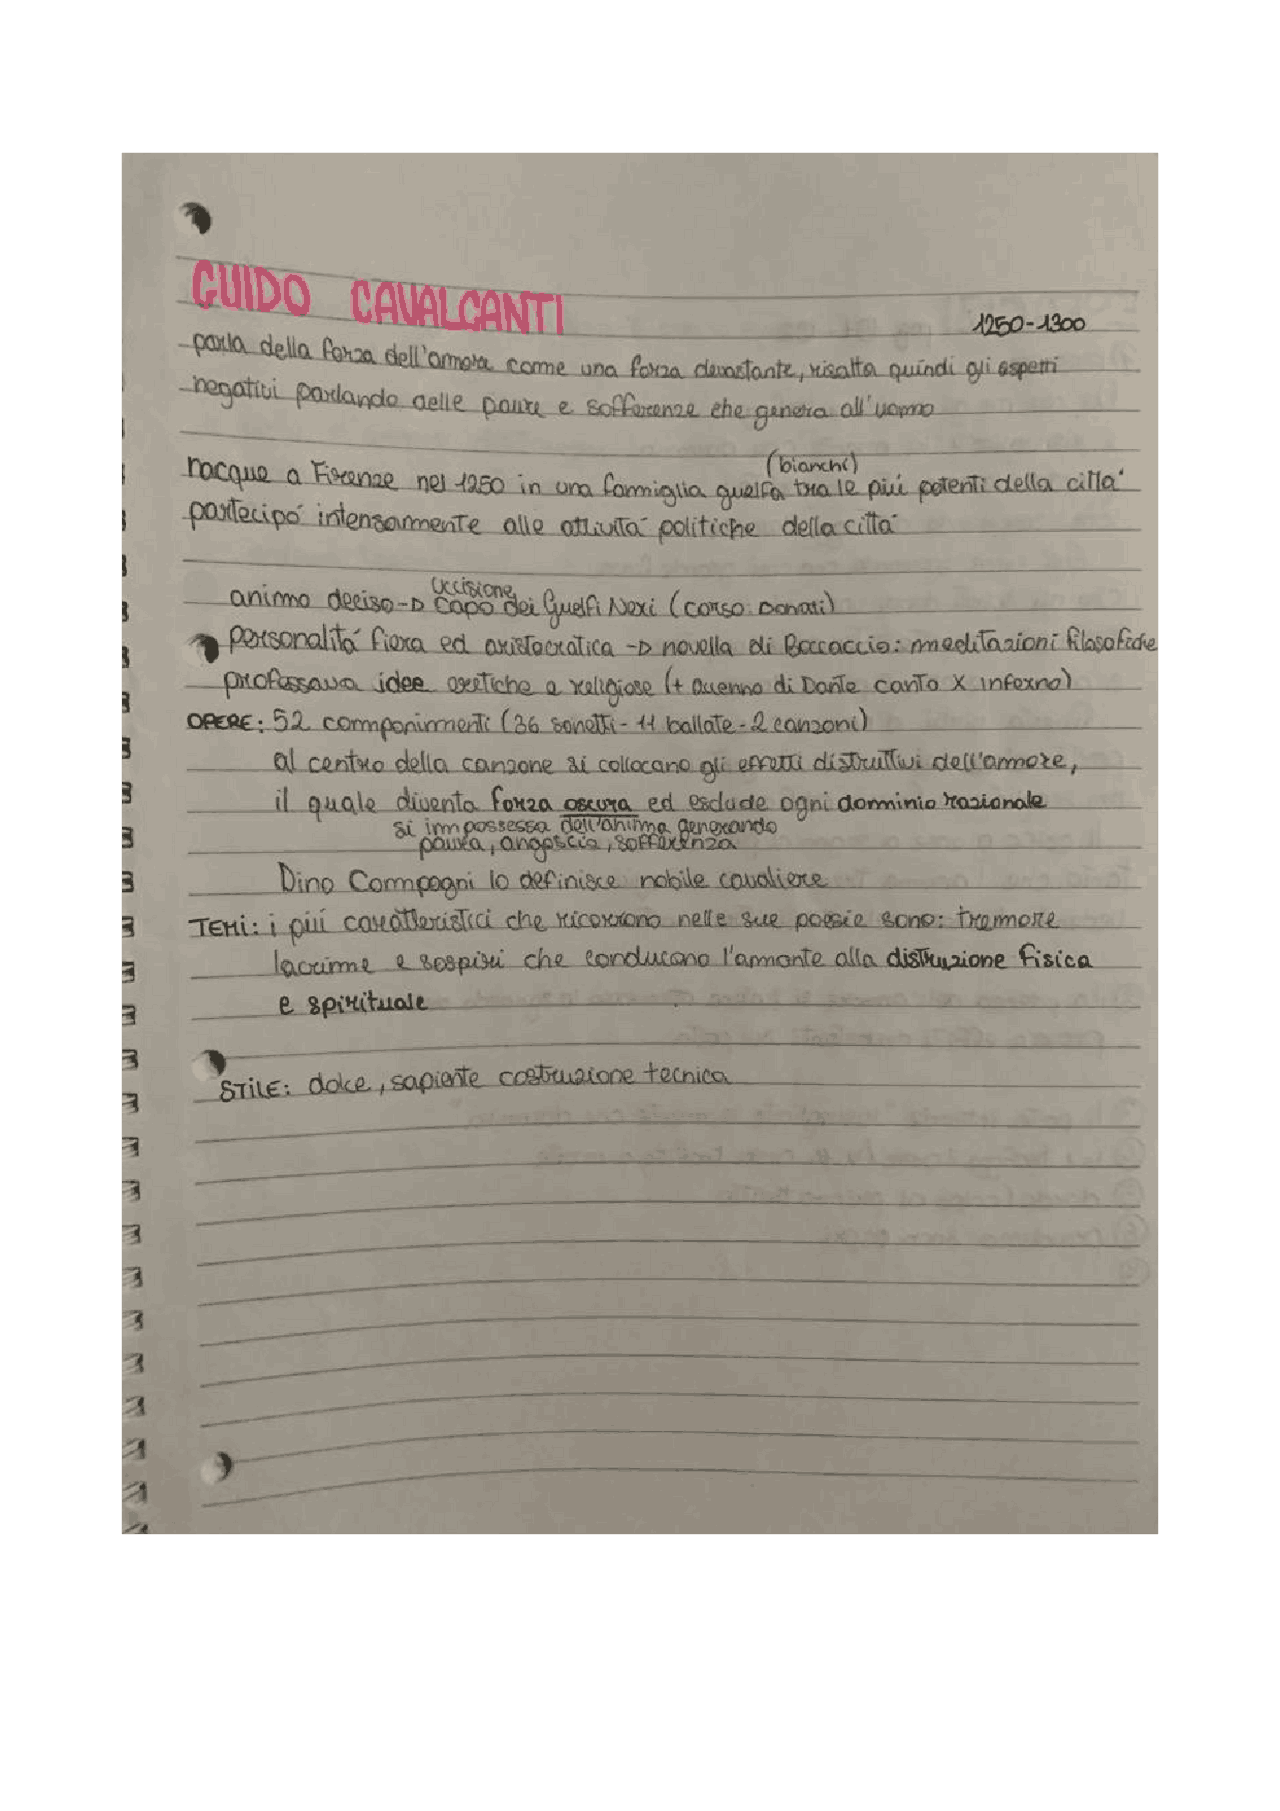 GUIDO CAVALCANTI
1250-1300
parla della forza dell'amore come una forza devastante, risalta quindi gli aspetti
negativi parlando delle paure e sofferenze che genera all'uomo
(bianchi)
nacque a Firenze nel 1250 in una famiglia guelfa tra le più potenti della città
partecipò intensamente alle attività politiche della città
uccisione
animo deciso -D capo dei Guelfi Neri (corso Donati)
personalità fiera ed aristocratica -D novella di Boccaccio: meditazioni filosofiche
professava idee eretiche e religiose (+ Dante canto X inferno)
OPERE: 52 componimenti (36 sonetti - 11 ballate - 2 canzoni)
al centro della canzone si collocano gli effetti distruttivi dell'amore,
il quale diventa forza oscura ed esclude ogni dominio razionale
si impossessa dell'anima generando
paura, angoscia, sofferenza
Dino Compagni lo definisce nobile cavaliere
TEMI: i più caratteristici che ricorrono nelle sue poesie sono: tremore
lacrime e sospiri che conducono l'amante alla distruzione fisica
e spirituale
STILE: dolce, sapiente costruzione tecnica